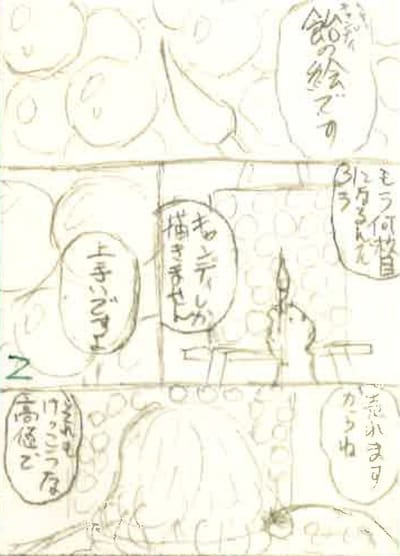 キャンディ
飴の絵です
もう何枚目
になるんだ
ろう
キャンディしか
描きません
上手いですよ
2
売れます
からね
それも
けっこうな
高値で